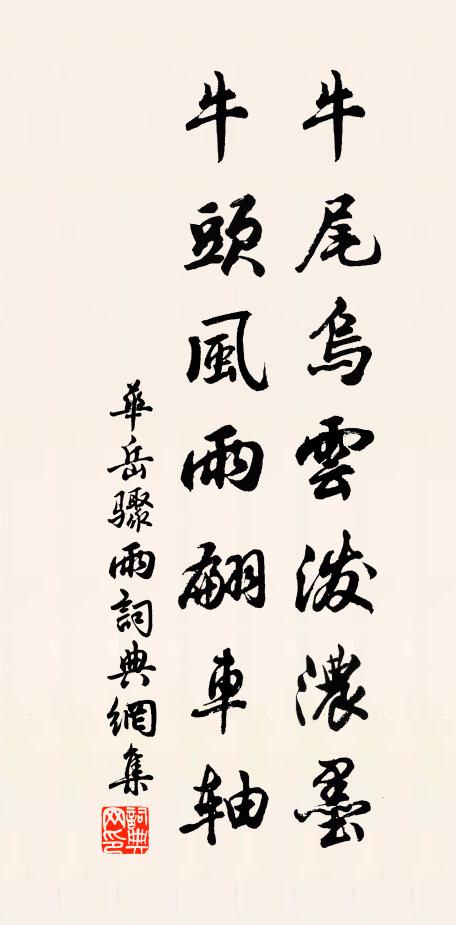 牛尾烏雲潑濃墨
牛頭風雨翻車軸
華岳驟雨詞典網集
詞典
网印